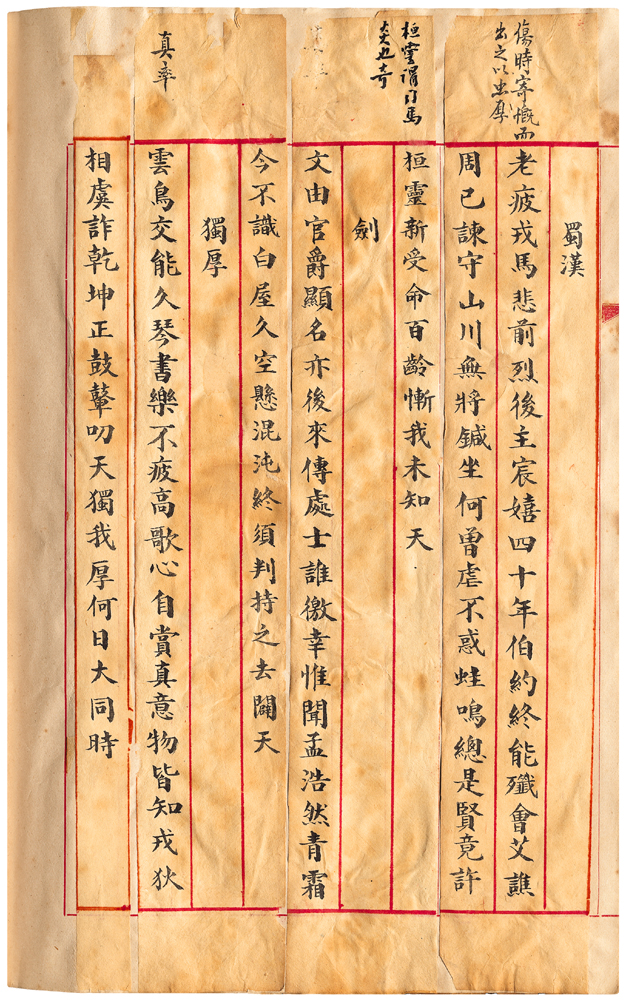 傷時寄慨而
出之以忠厚
蜀漢
老疲戎馬悲前烈後主宸嬉四十年伯約終能殲會艾譙
周已諫守山川無將鍼坐何曾虐不惑蛙鳴總是賢竟許
桓靈謂司馬
炎也奇
桓靈新受命百齡慚我未知天
劍
文由官爵顯名亦後來傳處士誰徼幸惟聞孟浩然青霜
今不識白屋久空懸混沌終須判持之去闢天
獨厚
真率
雲鳥交能久琴書樂不疲高歌心自賞真意物皆知戎狄
相虞詐乾坤正鼓鼙叨天獨我厚何日大同時